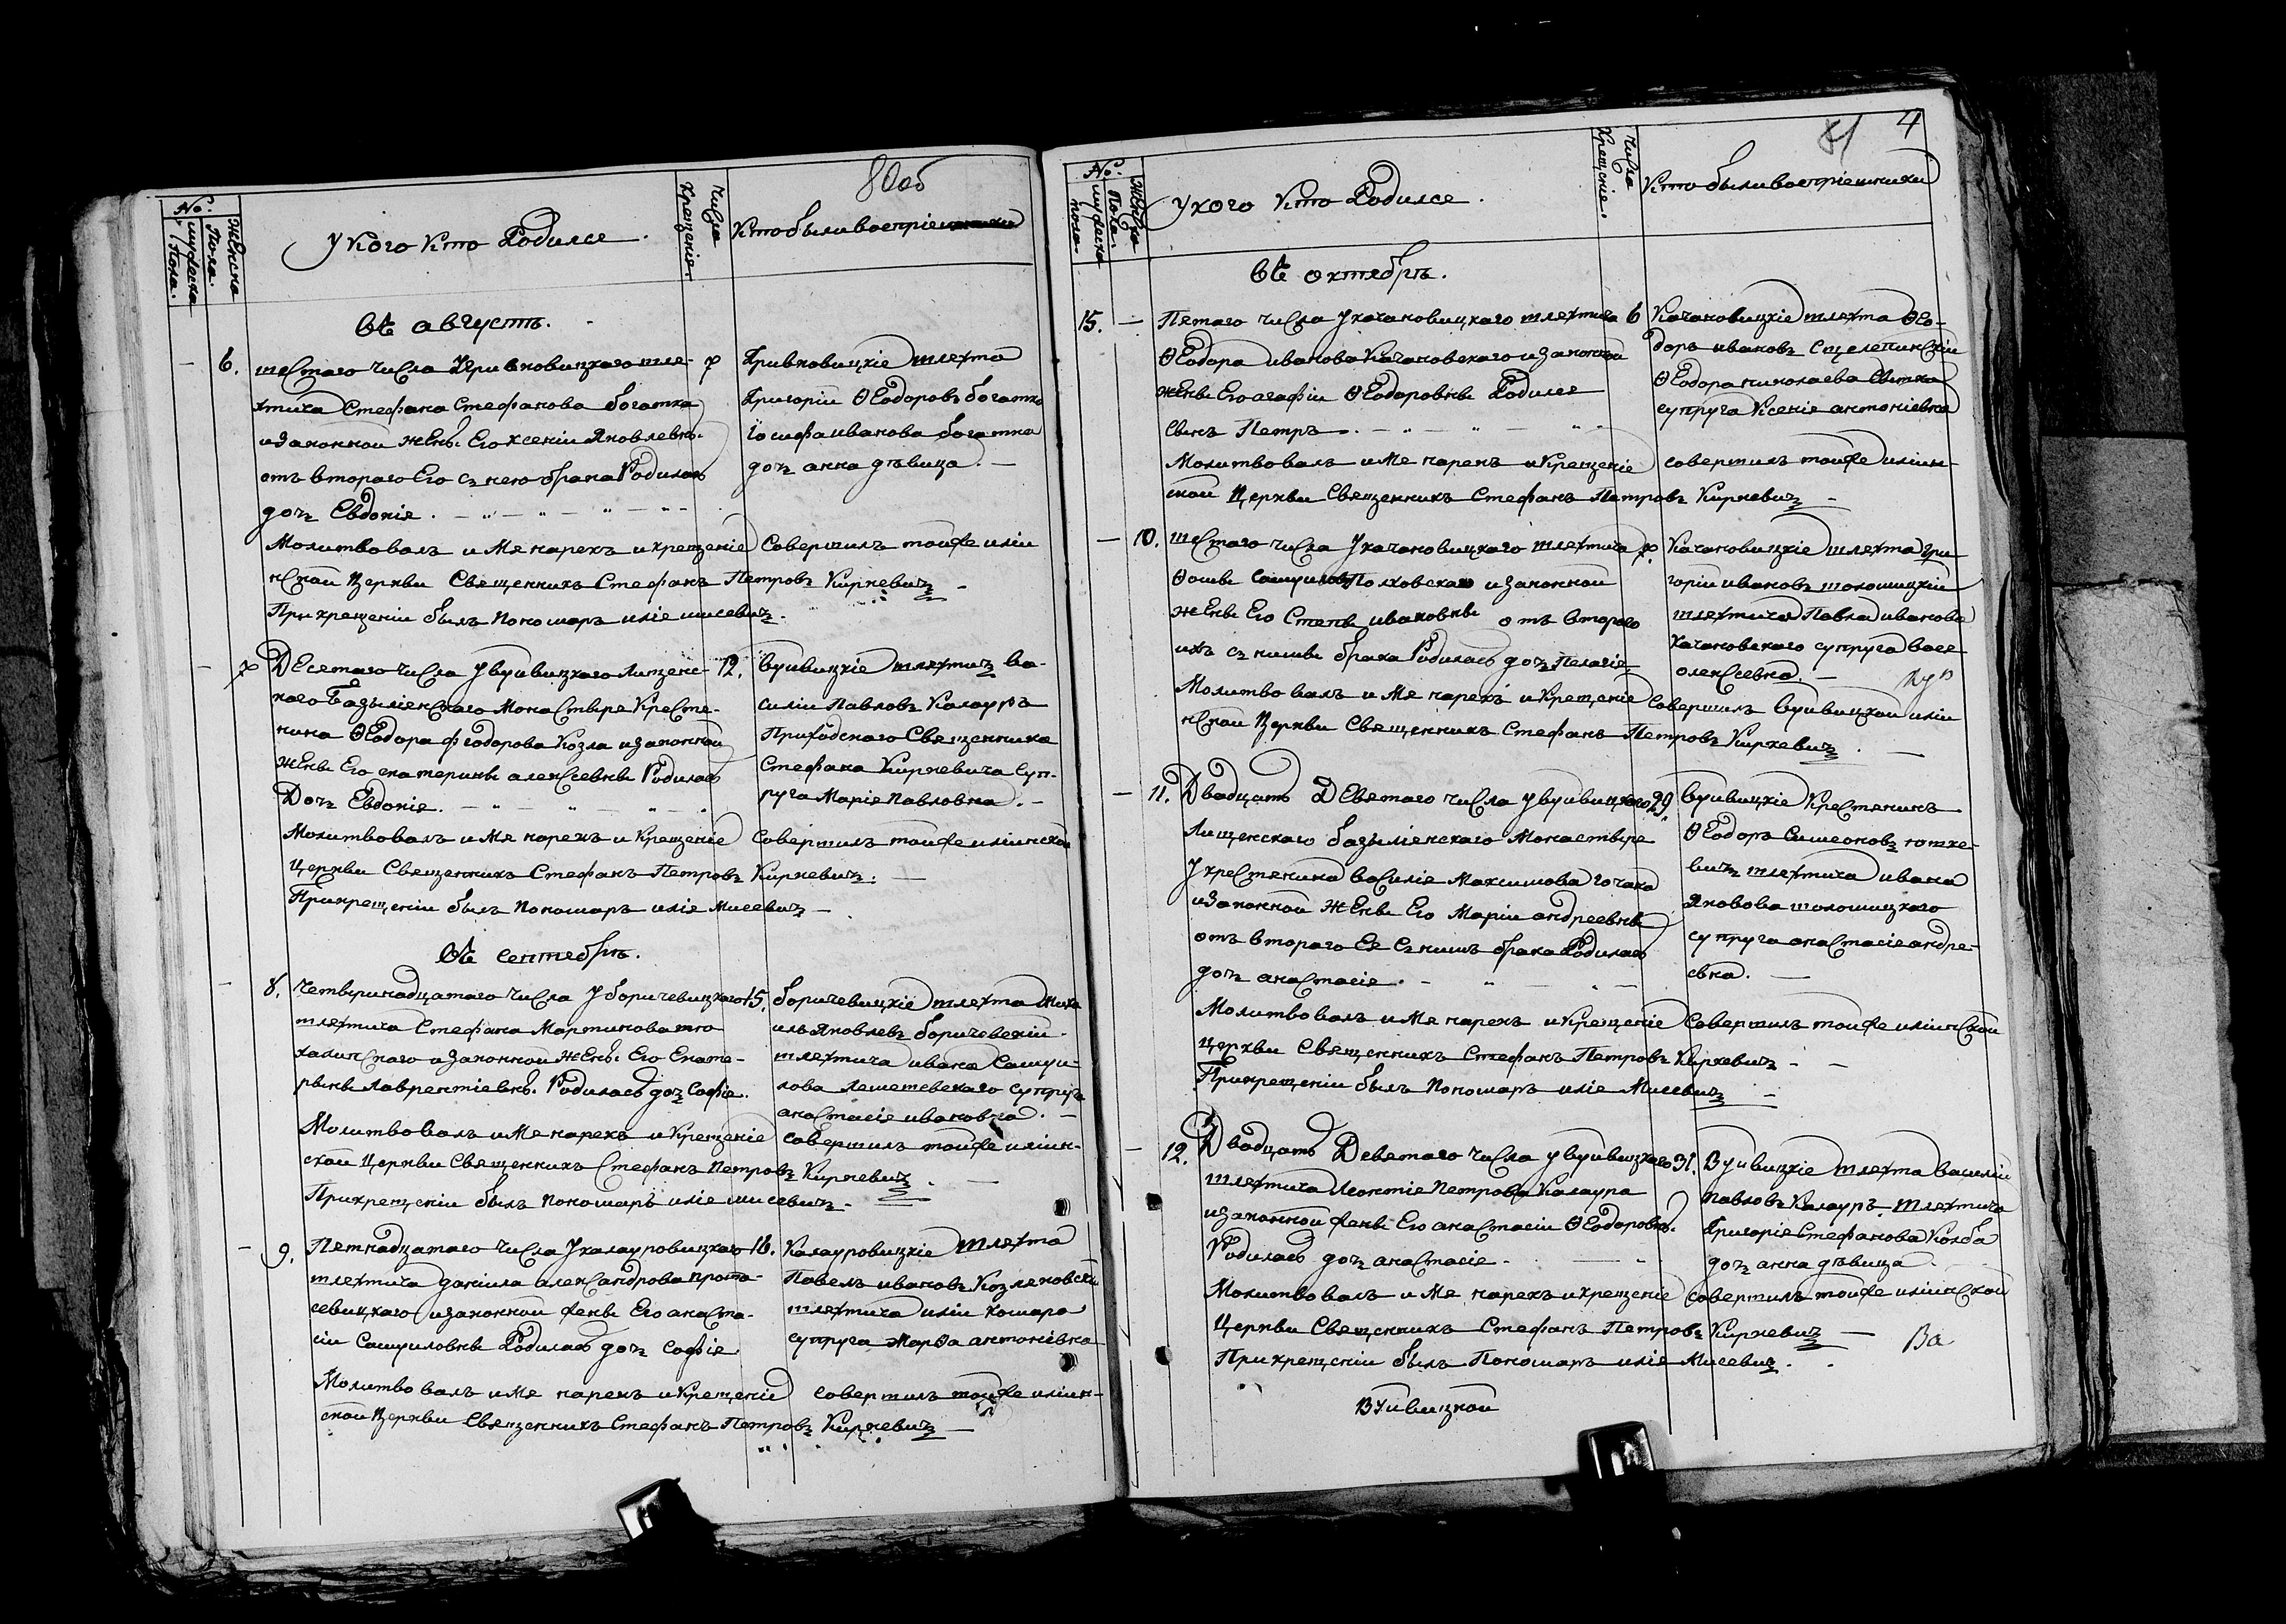 80об
No:
Женска Пола.
мужеска Пола.
У кого кто Родилсе.
Число Крещенiе.
Кто были воспрiемники
въ августѣ.
— 6. шестаго числа Кривковицкого шле- 7
хтича Стефана Стефанова богатка
и законной жены Его Ксенiи Яковлевны
отъ втораго Его с нею брака Родилась
дочъ Евдокiя.
Кривковицкiе шляхта
Григорiи Ѳеодоровъ богатко
iосифа иванова богатка
дочъ анна дѣвица. —
Молитвовалъ и мя нарекъ и крещенiе совершилъ тойже илiи
нской церкви Священникъ Стефанъ Петровъ Киркевичъ —
При крещенiи былъ пономаръ илiя мисевичъ.
— 7 Десятаго числа у вуйвицкаго Лищенс- 12.
каго Базылiенского Монастыря Кресте-
нина Ѳеодора федорова Козла и законной
жены Его екатерины алексеевны Родилась
Дочъ Евдокiя.
вуивицкiе шляхтичъ ва-
силiи Павловъ Калауръ
Приходскаго Священника
Стефана Киркевича суп-
руга Марiя Павловна. —
Молитвовалъ и мя нарекъ и Крещенiе совершилъ тойже илiинской
церкви Священникъ Стефанъ Петровъ Киркевичъ. —
При крещенiи былъ пономаръ илiя Мисевичъ —
въ септебрѣ.
— 8. Четверинадцатаго числа У боричевицкаго 15.
шляхтича Стефана Мартинова
и законной жены Его Екате-
рыны Лаврентiевны. Родилась дочъ Софiя.
боричевицкiе шляхта Миха
илъ Яковлевъ боричевскiи
шляхтича ивана Самуи-
лова Лешетевскаго супруга
анастасiя ивановна. —
Молитвовалъ и мя нарекъ и Крещенiе совершилъ тойже илiин-
ской церкви Священникъ Стефанъ Петровъ Киркевичъ. —
При крещенiи былъ пономаръ илiя мисевичъ.
— 9. Петнадцатаго числа У калауровицкаго 16.
шляхтича данiила александрова прота-
севицкаго и законной жены Его анаста-
сiи Самуиловны Родилась дочъ софiя
Калауровицкiе шляхта
Павелъ ивановъ Козляковски
шляхтича илiи комара
супруга Марѳа антонiевна
Молитвовалъ и мя нарекъ и Крещенiе совершилъ тойже илiин-
ской церкви Священникъ Стефанъ Петровъ Киркевичъ —
81 4
No:
Женска Пола.
мужеска пола.
У кого кто Родилсе.
Число Крещенiе.
Кто были воспрiемники
въ октябрѣ.
15. — Пятаго числа У качановицкаго шляхтича 6
Ѳеодора иванова Качановскаго и законной
жены Его агафiи Ѳеодоровны Родилсе
сынъ Петръ.
Качановицкiе шляхта Ѳео-
доръ ивановъ Стрелепинскiи
Ѳеодора николаева
супруга Ксенiя антонiевна
Молитвовалъ и мя нарекъ и Крещенiе совершилъ тойже илiин-
ской церкви Священникъ Стефанъ Петровъ Киркевичъ —
— 10. шестаго числа У качановицкаго шляхтича 7.
Ѳомы Самуилова Полховскаго и законной
жены Его Степы ивановны отъ второго
ихъ с ними брака Родилась дочъ Пелагiя
Качановицкiе шляхта Гри
горiи ивановъ толошицкiи
шляхтича Павла иванова
Качановскаго супруга васа
олексеевна. —
Молитвовалъ и мя нарекъ и Крещенiе совершилъ вуивицкой илiи
нской церкви Священникъ Стефанъ Петровъ Киркевичъ. —
— 11. Двадцать Девятаго числа у вуивицкаго 29.
Лищенскаго базылiенскаго Монастыря
У крестянина василiя Максимова
и законной жены Его Марiи андреевны
отъ втораго Ея с нимъ брака Родилась
дочъ анастасiя.
вуивицкiе Крестянинъ
Ѳеодоръ Симеоновъ ютке-
вичъ шляхтича ивана
Яковова толошицкаго
супруга анастасiя андре-
евна. —
Молитвовалъ и мя нарекъ и Крещенiе совершилъ тойже илiинской
церкви Священникъ Стефанъ Петровъ Киркевичъ —
При крещенiи былъ пономаръ илiя Мисевичъ —
— 12. Двадцать Девятаго числа у вуивицкаго 31.
шляхтича Леонтiя Петрова Калаура
и законной жены Его анастасiи Ѳеодоровны.
Родилась дочъ анастасiя.
Вуивицкiе шляхта василiи
Павловъ Калауръ. Шляхтича
Григорiя Стефанова Колба
дочъ анна дѣвица
Молитвовалъ и мя нарекъ и крещенiе совершилъ тойже илiинской
церкви Священникъ Стефанъ Петровъ Киркевичъ —
При крещенiи былъ Пономаръ илiя Мисевичъ.
Ва
вуйвицкой